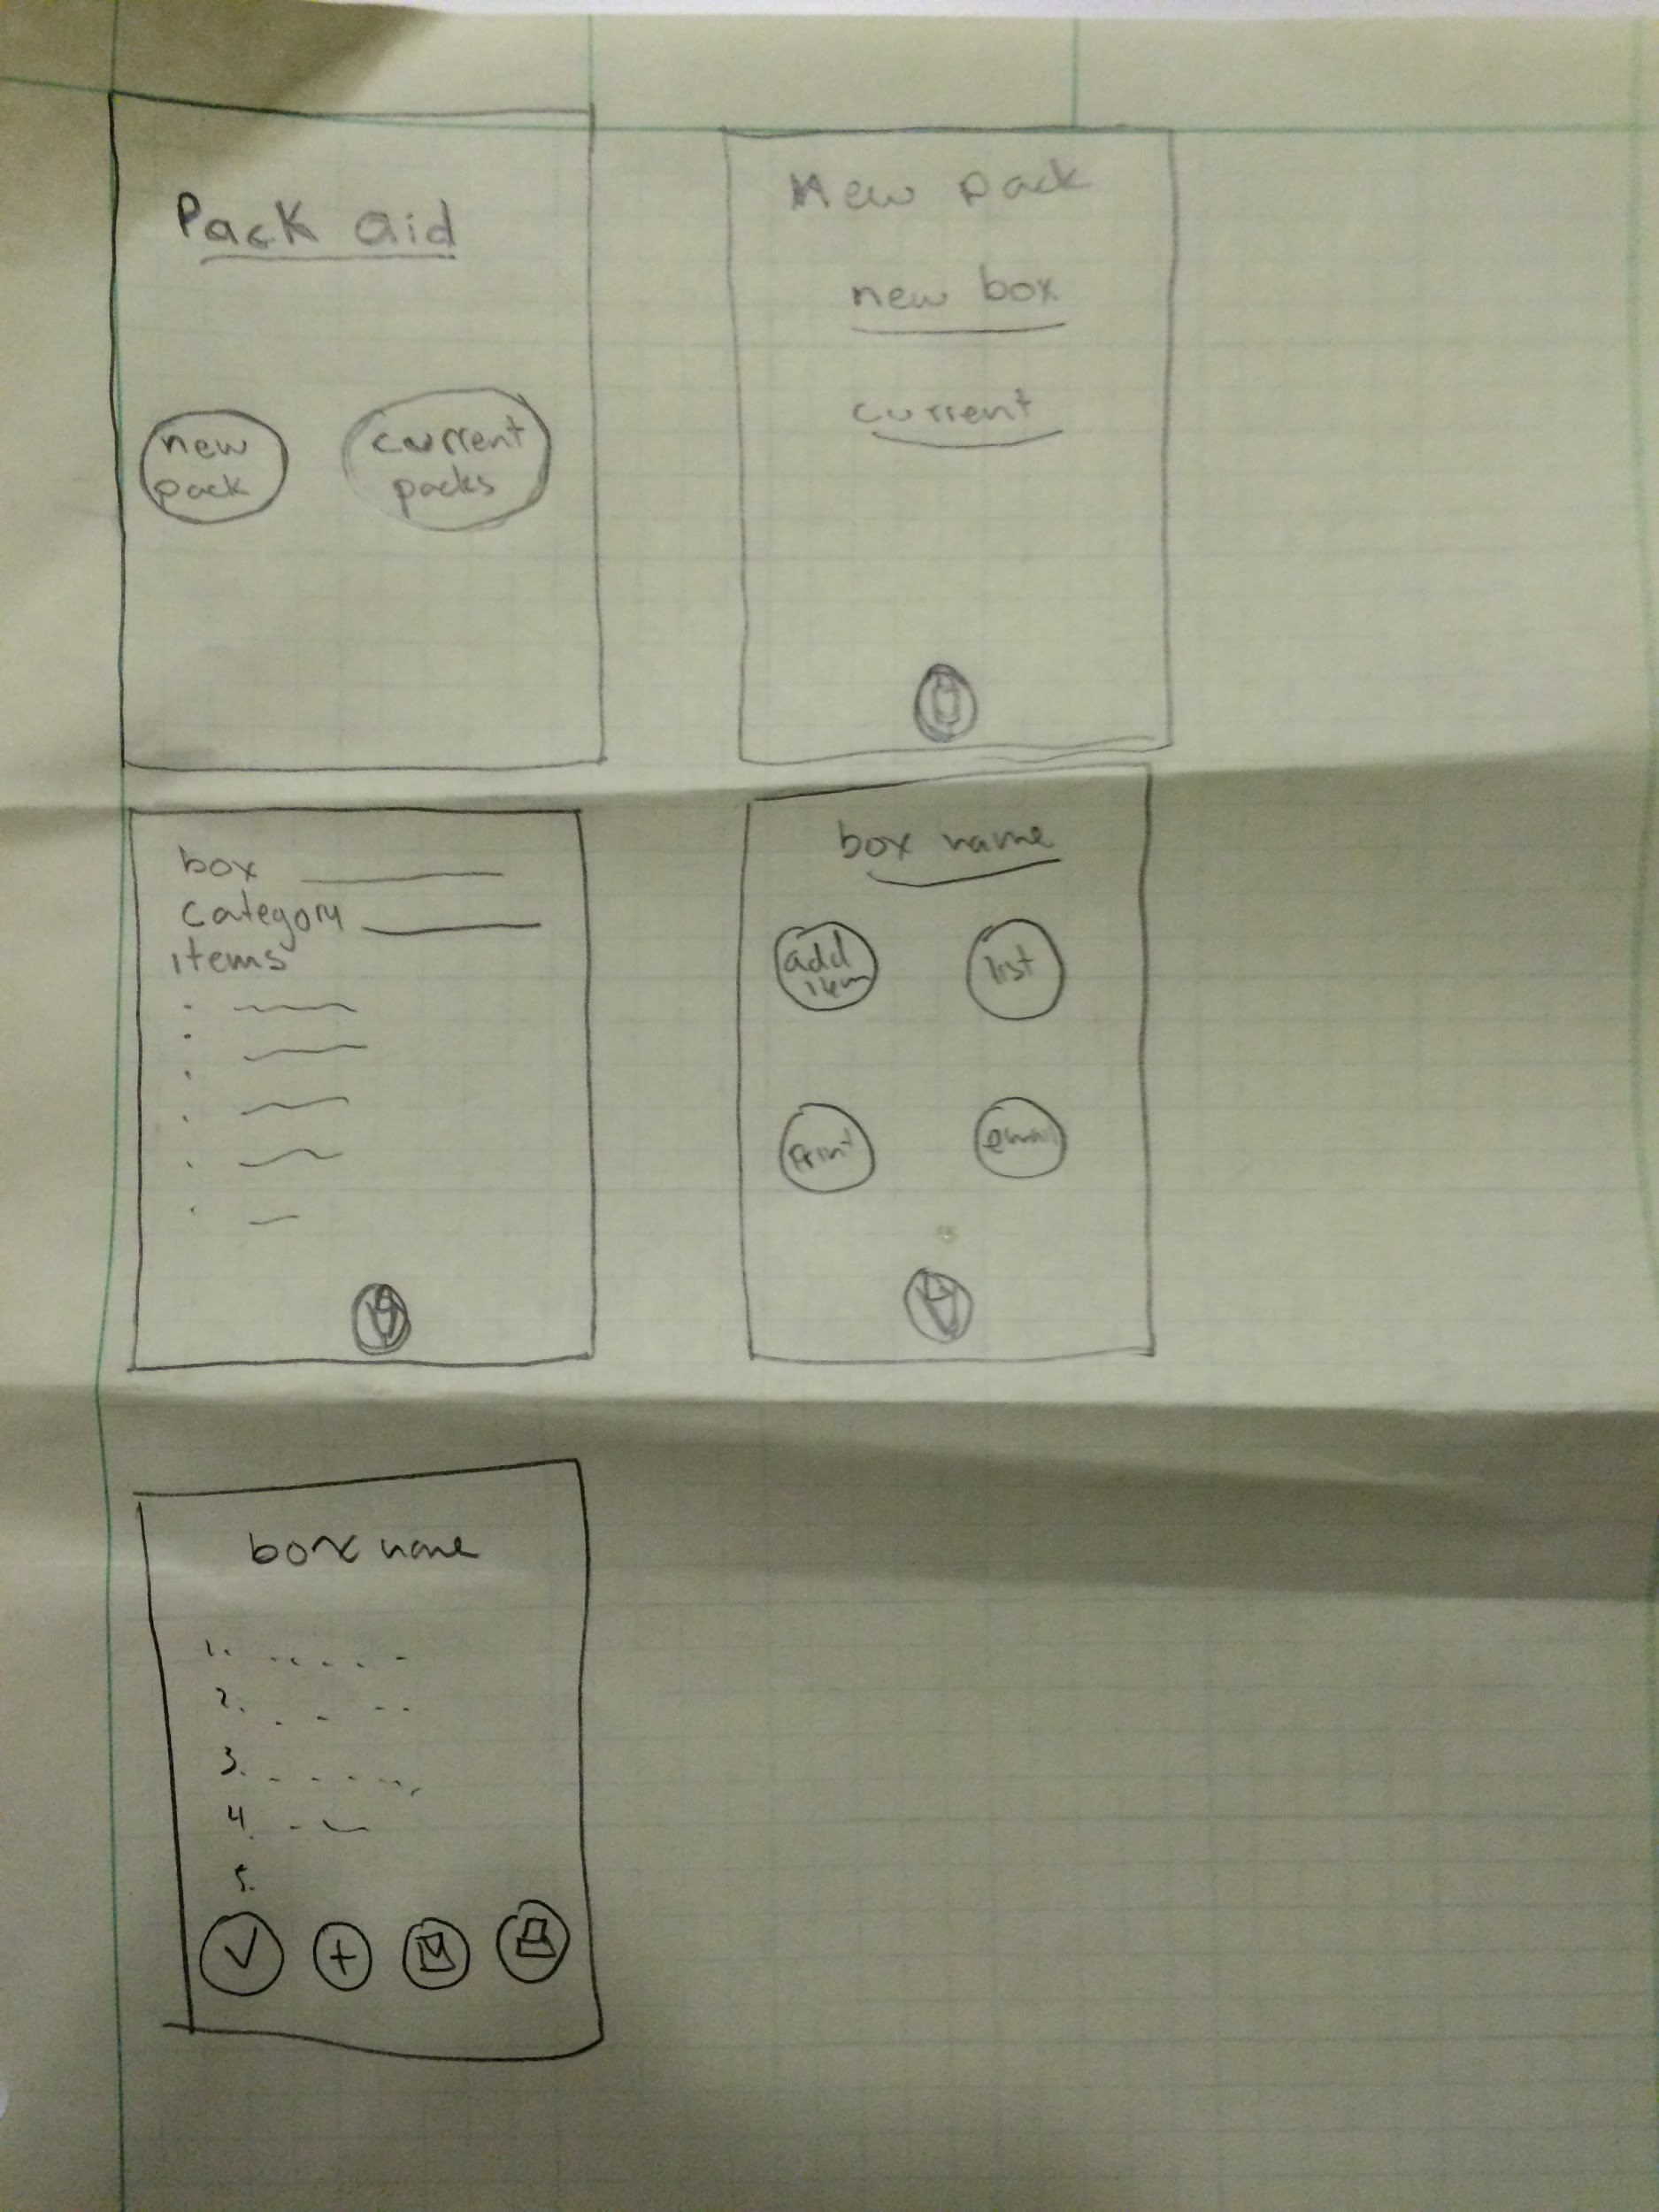 Pack aid
new
pack
current
packs
New pack
new box
current
box
category
items
box name
add
item
list
print
email
box name
1.
2.
3.
4.
5.